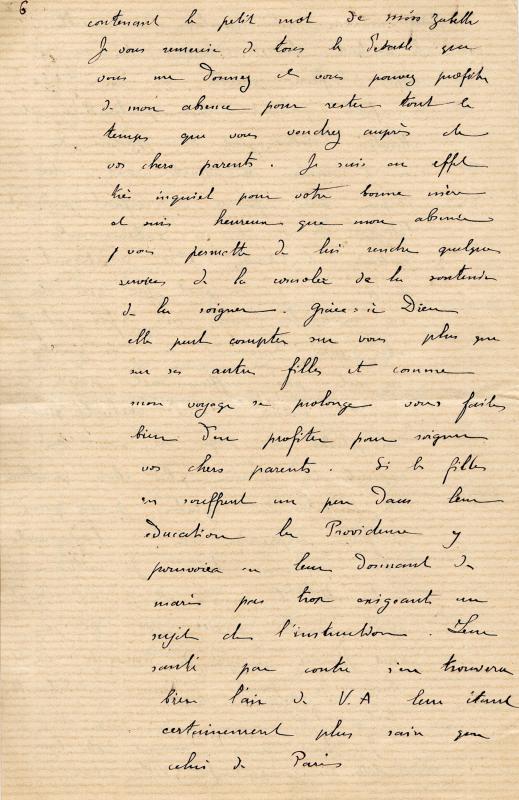 6
contenant le petit mot de miss
Je vous remercie de tous les détails que
vous me donnez et vous pouvez profiter
de mon absence pour rester tout le
temps que vous voudrez auprès de
vos chers parents. Je suis en effet
très inquiet pour votre bonne mère
et suis heureux que mon absence
vous permette de lui rendre quelques
services de la consoler de la soutenir
de la soigner. Grâces à Dieu
elle peut compter sur vous plus que
sur ses autres filles et comme
mon voyage se prolonge vous faites
bien d'en profiter pour soigner
vos chers parents. Si les filles
en souffrent un peu dans leur
éducation la Providence y
pourvoiera en leur donnant des
maris pas trop exigeants au
sujet de l'instruction. Leur
santé par contre s'en trouvera
bien l'air de V.A leur étant
certainement plus sain que
celui de Paris